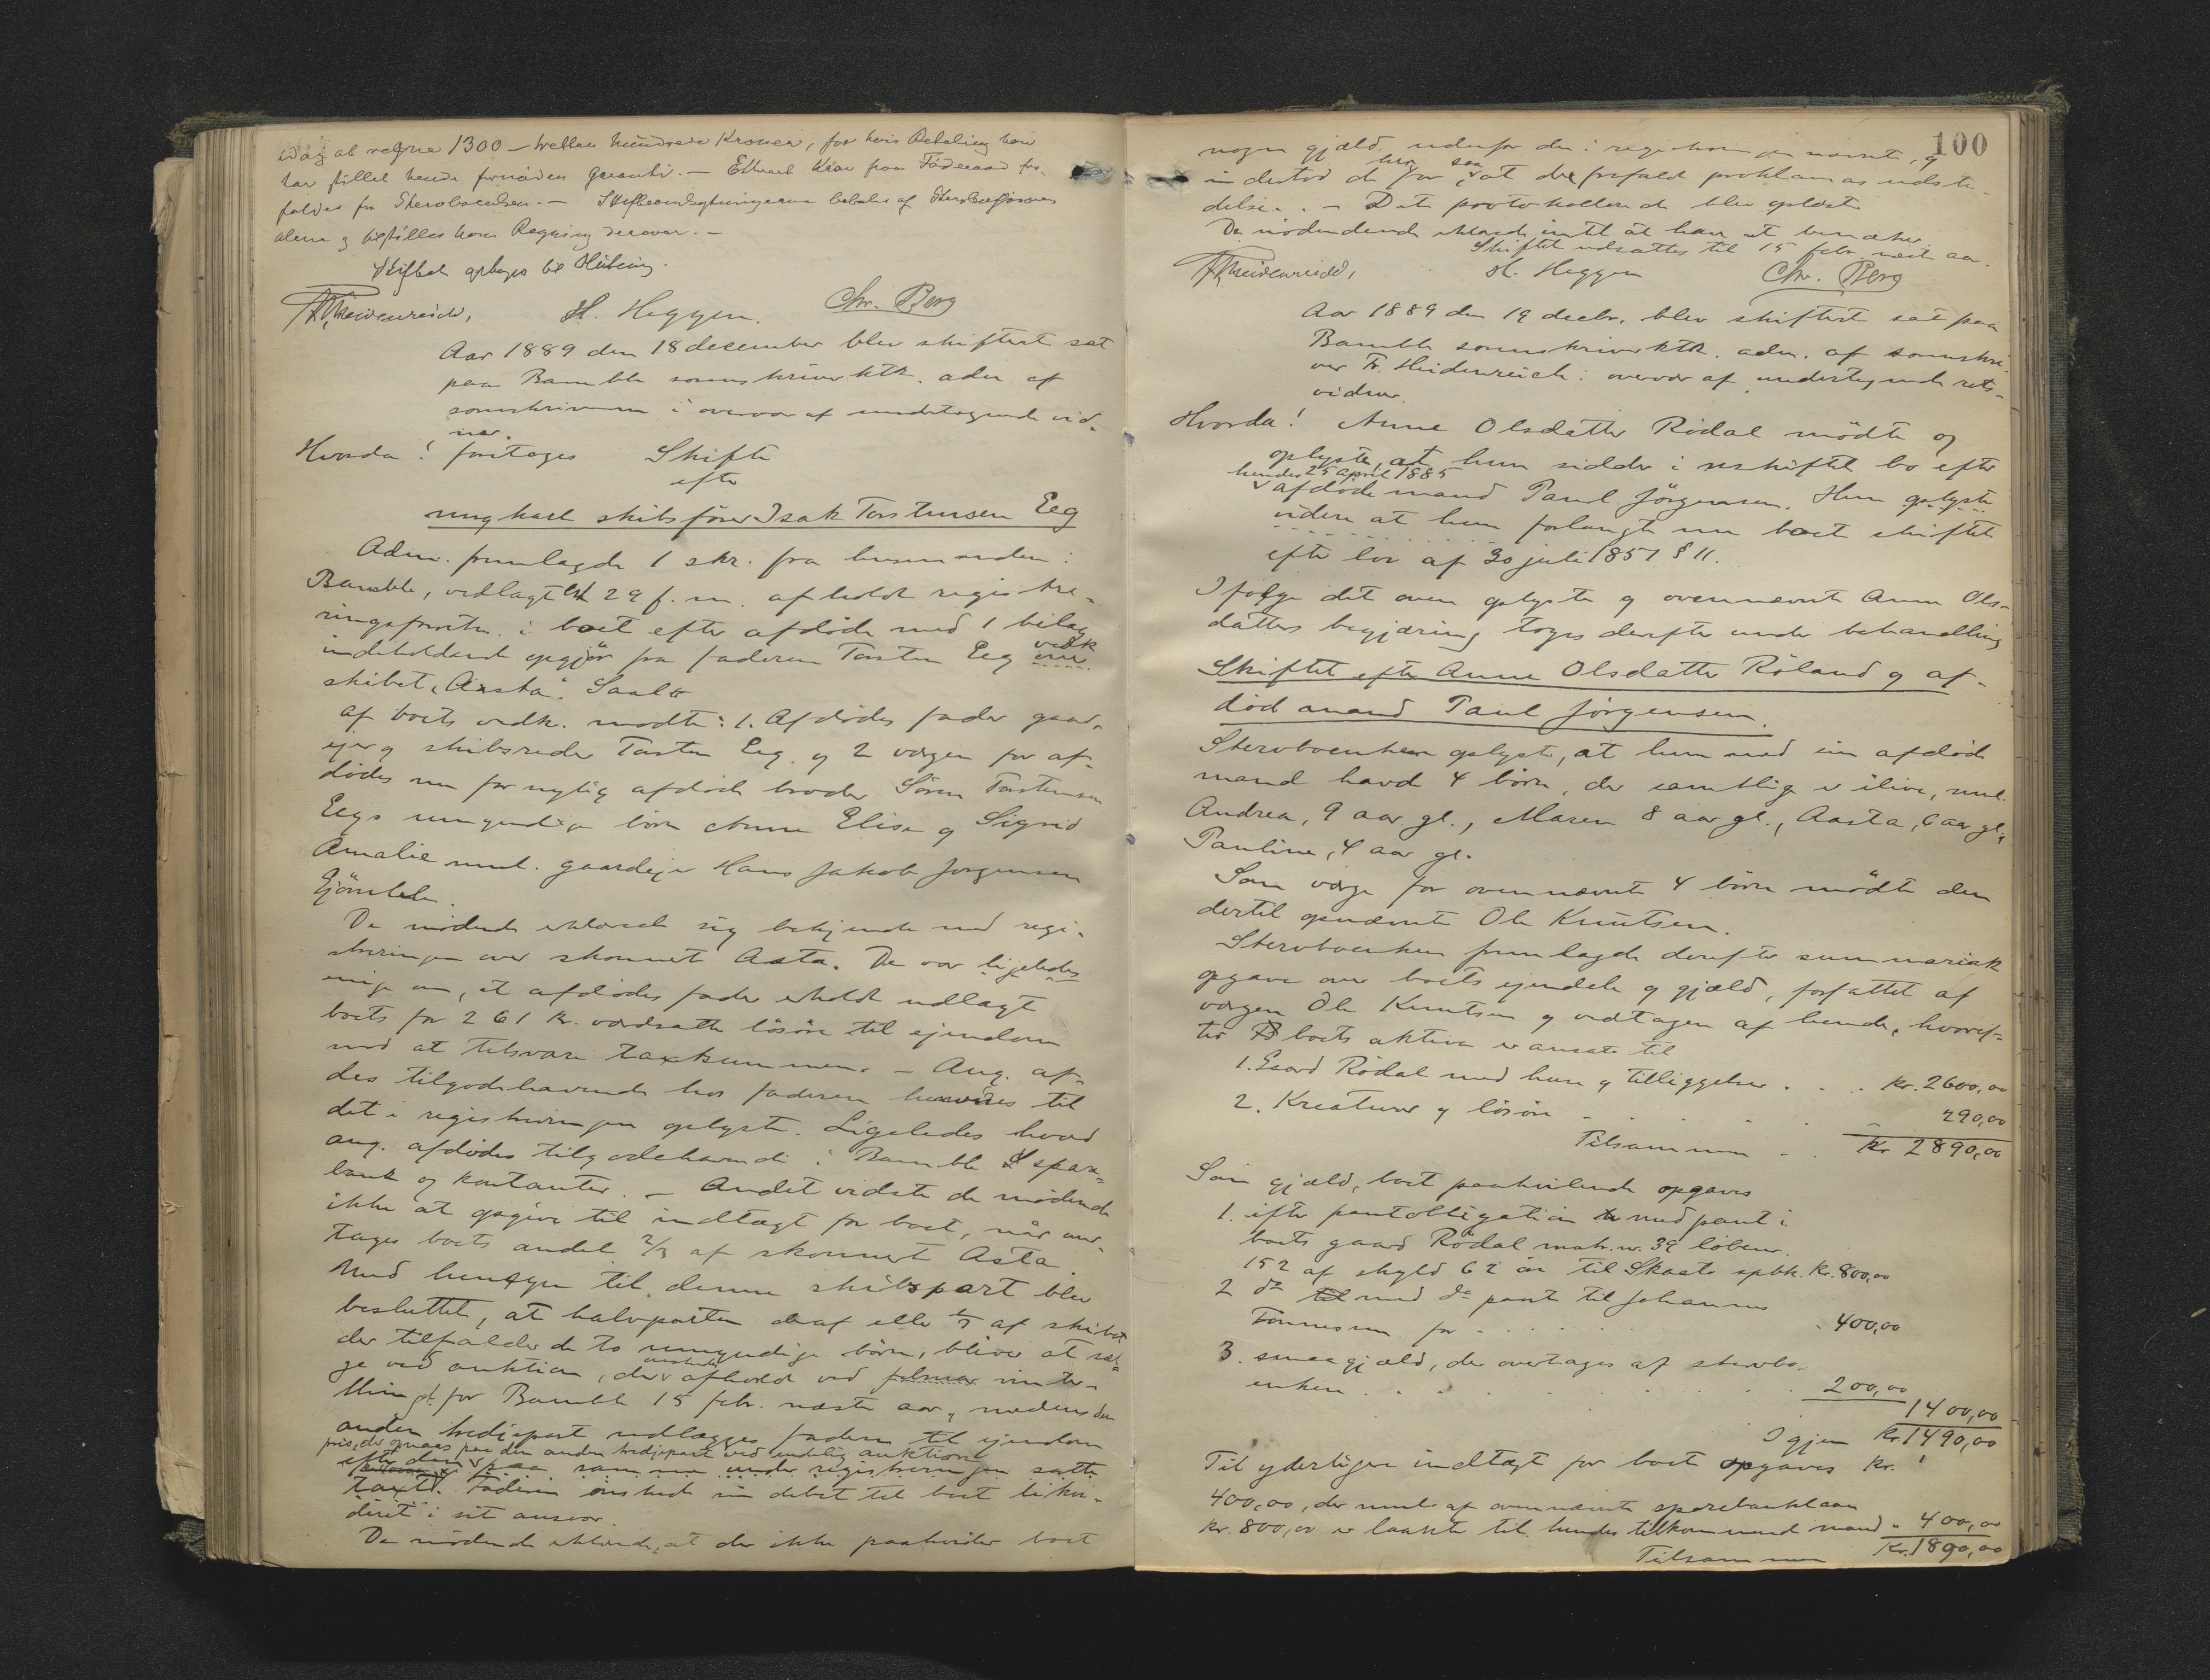 idag at regne 1300 – tretten hundrede Kroner, for hvis Betaling han
har stillet hende fornøden Garanti. – Ethvert Krav paa Føderaad fra-
faldes fra Stervboenken. – Skifteomkostningerne betales af Stervboenken
alene og tilstilles hans Regning derover. –
Skiftet optages til Slutning.
Fr Heidenreich, H. Heggen. Chr. Berg
Aar 1889 den 18 december blev skifteret sat
paa Bamble sorenskriverktr. adm. af
sorenskriveren i overvær af undertegnede vid-
ner.
Hvorda! foretoges Skifte
efter
ungkarl skibsfører Isak Torstensen Eeg
Adm. fremlagde 1 skr. fra lensmanden i
Bamble, vedlagt 29 f. m. afholdt registre-
ringsforretn. i boet efter afdøde med 1 bilag
indeholdende opgjør fra faderen Torsten Eeg vedk
skibet "Aasta". Saal.
af boets vedk. mødte: 1. Afdødes fader gaard-
ejer og skibsreder Torsten Eeg. og 2 vergen for af-
dødes nu for nylig afdøde broder Søren Torstensen
Eegs umyndige børn Anne Elise og Sigrid
Amalie neml. gaardejer Hans Jakob Jørgensen
De mødende erklærede sig bekjendte med regi-
streringen over skonnert Asta. De var ligeledes
enige om, at afdødes fader erholdt udlagt
boets for 261 kr. værdsatte løsøre til ejendom
mod at tilsvare taxtsummen. – Ang. af-
des tilgodehavende hos faderen henvises til
det i registreringen oplyste. Ligeledes hvad
ang. afdødes tilgodehavende i Bamble spare-
bank og kontanter. – Andet vidste de mødende
ikke at opgive til indtægt for boet, når und-
tages boets andel 2/3 af skonnert Asta.
Med hensyn til denne skibspart blev
besluttet, at halvparten deraf eller 1/3 af skibet
der tilfalder de to umyndige børn, bliver at sæl-
ge ved auktion, der afholdt ved februar vinter-
thinget for Bamble 15 febr. næste aar, medens den
anden tredjepart udlægges faderen til ejendom
pris, der opnaaes paa den anden tredjepart ved endelig auktion
efter den paa samme under registreringen satte
taxt. Faderen ønskede sin debet til boet likvi-
deret i sit ansvar.
De mødende erklærede, at der ikke paahviler boet
100
nogen gjæld, udenfor den i registreringen nævnte, og
indestod de herfor saa at det frafaldt proklamas udste-
delse. – Det protokollerede blev oplæst
De mødende erklærede intet at have at bemærke.
Skiftet udsattes til 15 febr. næste aar.
Fr Heidenreich, H. Heggen Chr. Berg
Aar 1889 den 19 decbr. blev skifteret sat paa
Bamble sorenskriverktr. adm. af sorenskri-
ver Fr. Heidenreich i overvær af undertegnede rets-
vidner.
Hvorda! Anne Olsdatter Rødal mødte og
oplyste, at hun sidder i uskiftet bo efter
hendes 25 april 1885
afdøde mand Paul Jørgensen. Hun oplyste
videre at hun forlangte nu boet skiftet
efter lov af 30 juli 1851 § 11.
Ifølge det oven oplyste og ovennævnte Anne Ols-
datters begjæring toges derefter under behandling
Skiftet efter Anne Olsdatter Röland og af-
död mand Paul Jörgensen.
Stervboenken oplyste, at hun med sin afdöde
mand havde 4 börn, der samtlige er ilive, neml.
Andrea, 9 aar gl., Maren 8 aar gl., Aasta, 6 aar gl.,
Pauline, 4 aar gl.
Som verge for ovennævnte 4 börn mödte den
dertil opnævnte Ole Knutsen.
Stervboenken fremlagde derefter summarisk
opgave over boets ejendele og gjæld, forfattet af
vergen Ole Knutsen og vedtagen af hende, hvoref-
ter boets aktiva er ansat til
1. Gaard Rödal med huse og tilliggelser . . . Kr. 2600,00
2. Kreaturer og lösöre - . . . - 290,00
Tilsammen - . Kr 2890,00
Som gjæld, boet paahvilende opgaves
1. efter pantobligation med pant i
boets gaard Rödal matr.nr. 39 löbenr.
152 af skyld 62 öre til Skaatö spbk. Kr. 800,00
2 do med do pant til Johannes
Tönnesen for - . . . 400,00
3. smaagjæld, der overtages af stervbo-
enken . . . . . . 200,00
1400,00
Igjen Kr. 1490,00
Til yderligere indtægt for boet opgaves Kr.
400,00, der neml. af ovennævnte sparebanklaan
Kr. 800,00 er laante til hendes tilkommende mand " 400,00
Tilsammen Kr. 1890,00